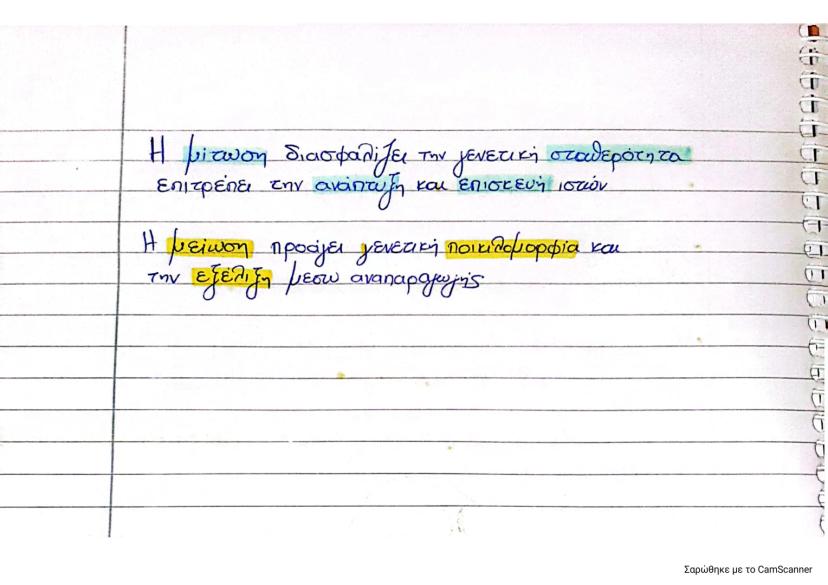 Η μίτωση διασφαλίζει την γενετική σταθερότητα
επιτρέπει την ανάπτυξη και επισκευή ιστών
Η μείωση προάγει γενετική ποικιλομορφία και
την εξέλιξη μέσω αναπαραγωγής
Σαρώθηκε με το CamScanner